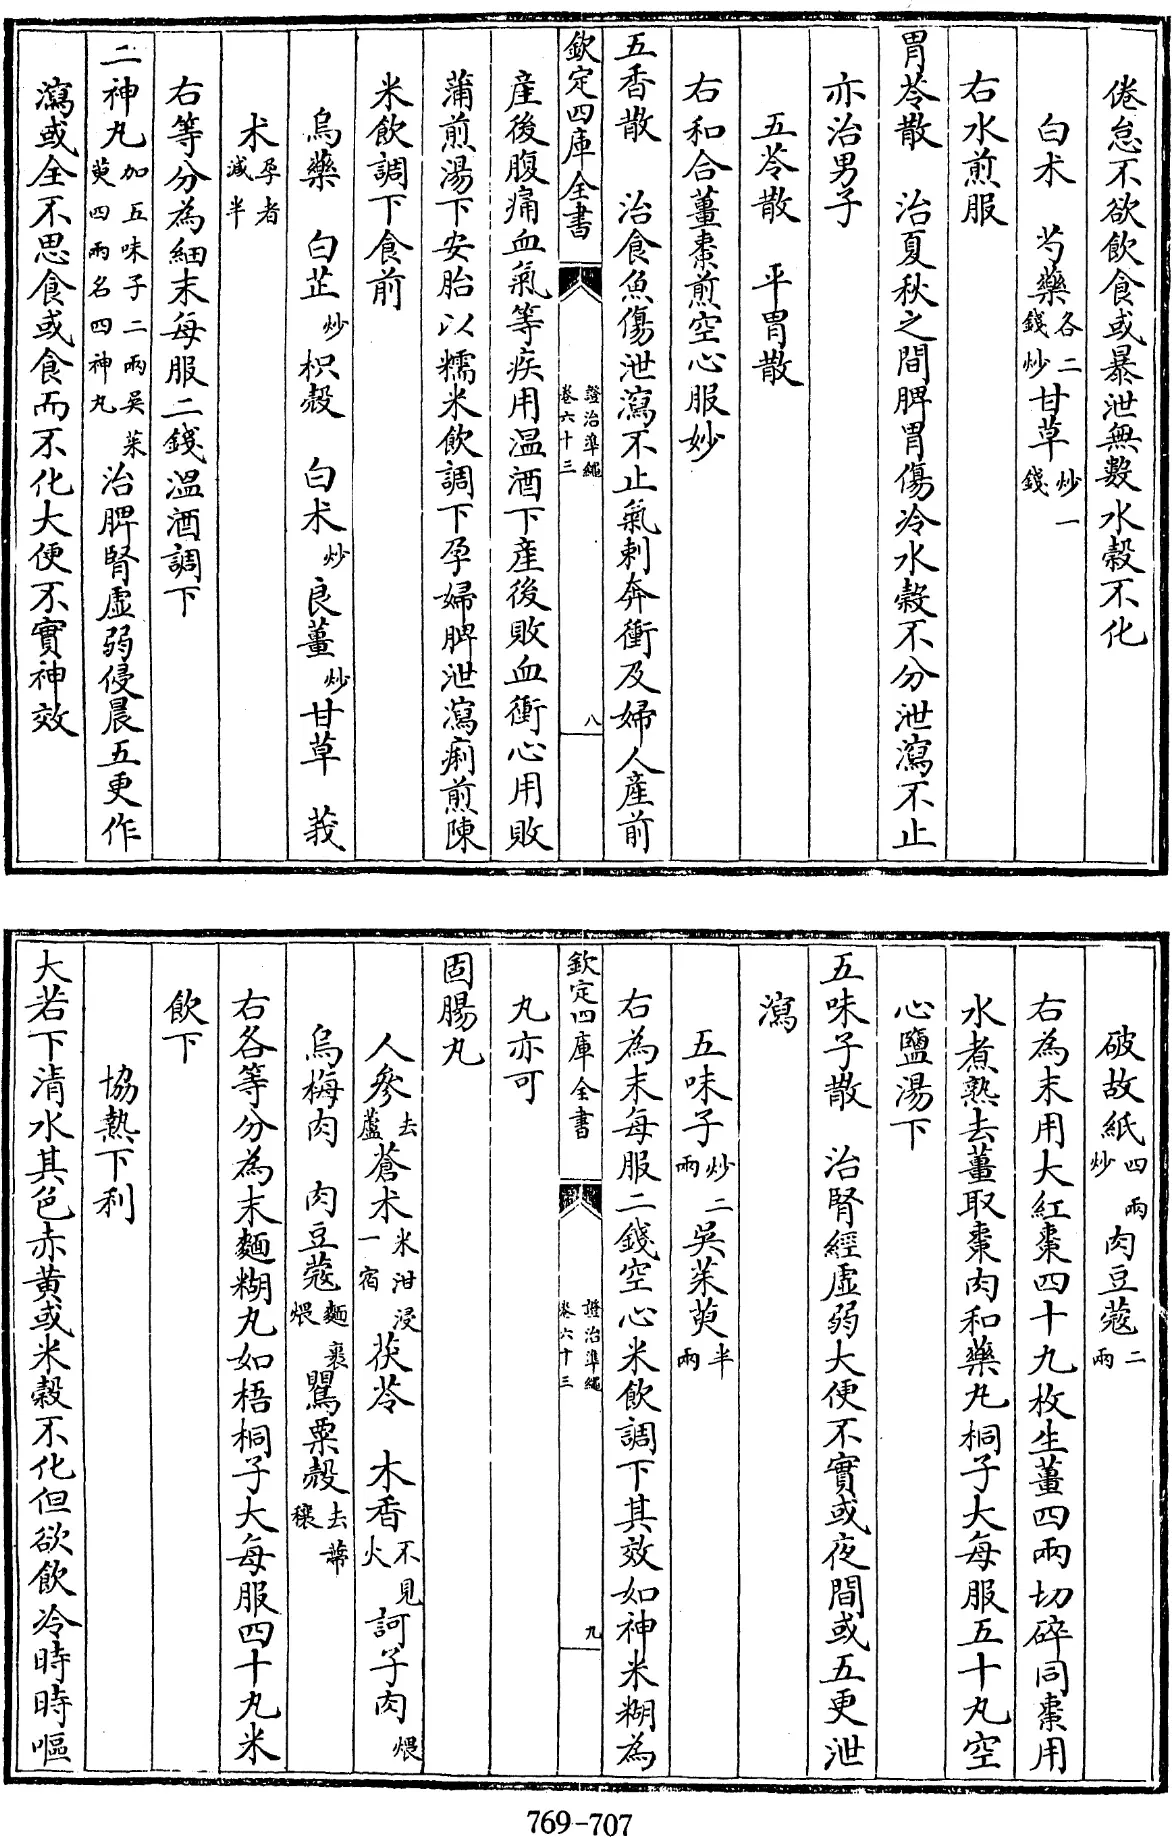 倦怠不欲飲食或暴泄無數水穀不化
白术 芍藥各二錢炒甘草炒一錢
右水煎服
胃苓散 治夏秋之間脾胃傷冷水穀不分泄瀉不止
亦治男子
五苓散 平胃散
右和合薑棗煎空心服妙
五香散 治食魚傷泄瀉不止氣刺奔衝及婦人産前
欽定四庫全書
證治準繩
卷六十三
八
産後腹痛血氣等疾用温酒下産後敗血衝心用敗
蒲煎湯下安胎以糯米飲調下孕婦脾泄瀉痢煎陳
米飲調下食前
烏藥 白芷炒枳殼 白术炒良薑炒甘草 莪
术孕者減半
右等分為細末每服二錢温酒調下
二神丸加五味子二兩吳茱萸四兩名四神丸治脾腎虛弱侵晨五更作
瀉或全不思食或食而不化大便不實神效
破故紙四兩炒肉豆蔻二兩
右為末用大紅棗四十九枚生薑四兩切碎同棗用
水煮熟去薑取棗肉和藥丸桐子大每服五十丸空
心鹽湯下
五味子散 治腎經虛弱大便不實或夜間或五更泄
瀉
五味子炒二兩吳茱萸半兩
右為末每服二錢空心米飲調下其效如神米糊為
欽定四庫全書
證治準繩
卷六十三
九
丸亦可
固腸丸
人參去蘆蒼术米泔浸一宿茯苓 木香不見火訶子肉煨
烏梅肉 肉豆蔻麵裹煨罌粟殼去蒂穰
右各等分為末麵糊丸如梧桐子大每服四十丸米
飲下
協熱下利
大若下清水其色赤黄或米穀不化但欲飲冷時時嘔
769-707